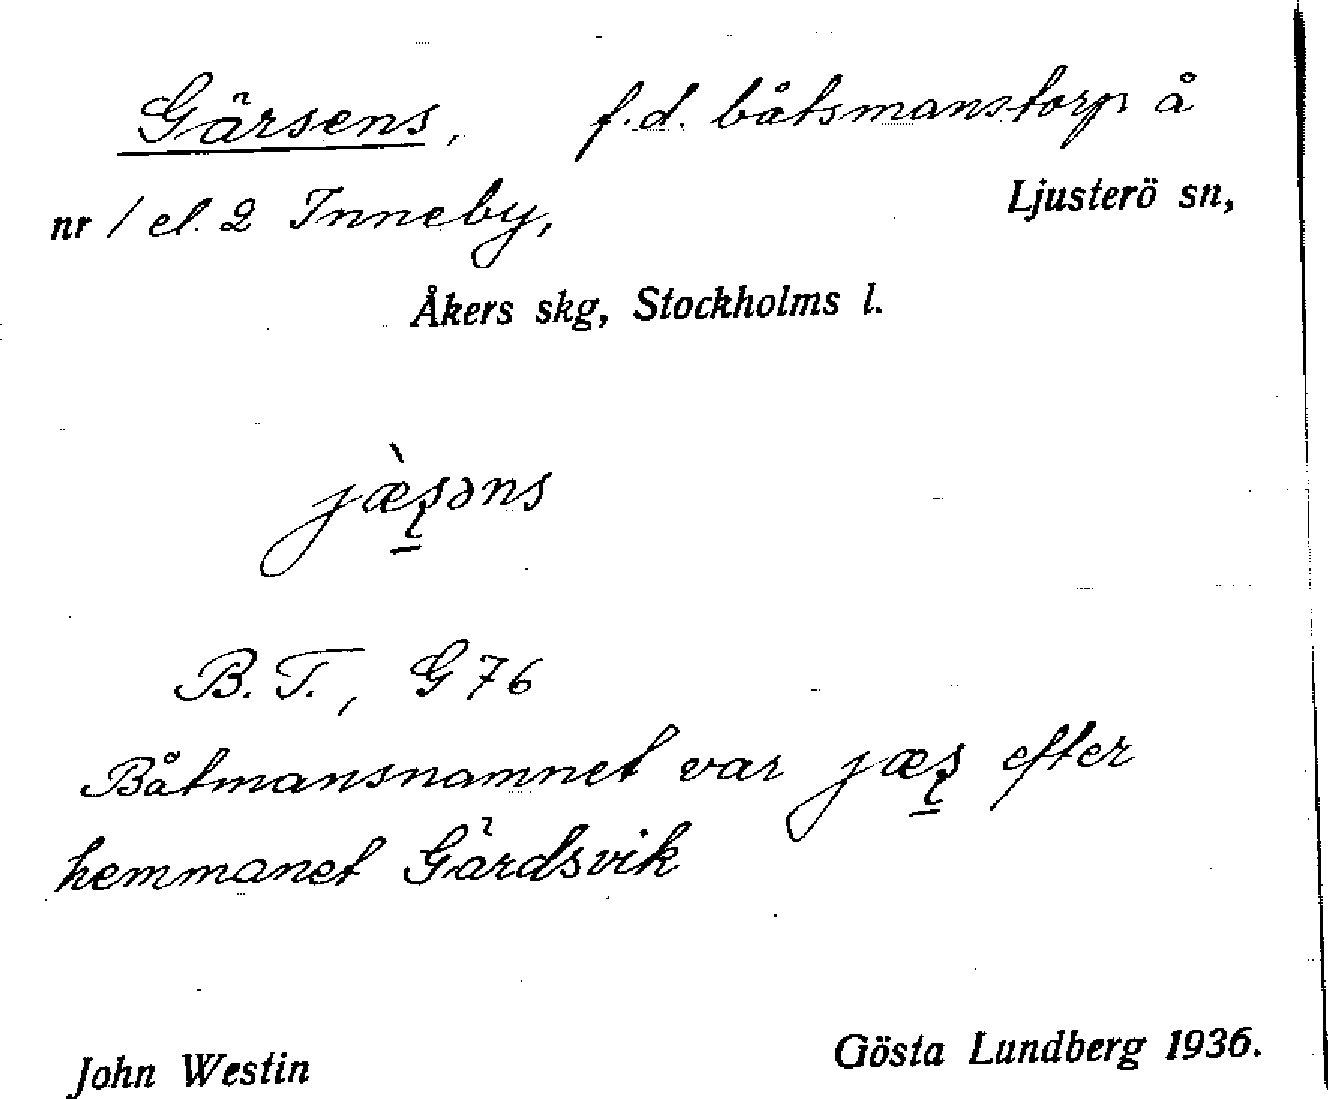 Gärsens, f.d. båtsmanstorp å
nr 1 el. 2 Inneby, Ljusterö sn,
Åkers skg, Stockholms l.
jæ̀ʂəns
B.T., G 76
Båtmansnamnet var jæʂ efter
hemmanet Gärdsvik
John Westin Gösta Lundberg 1936.